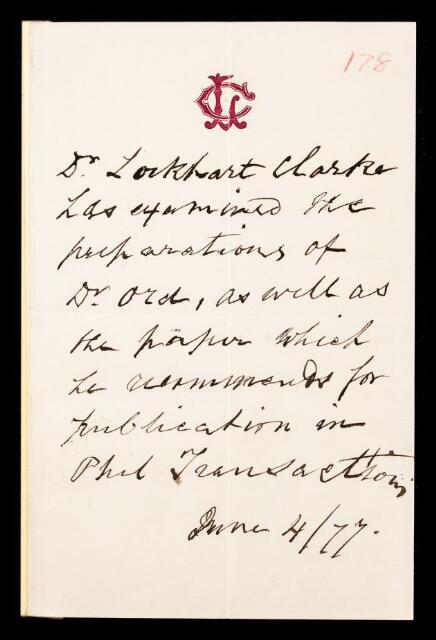 178
Dr. Lockhart Clarke
has examined the
preparations of
Dr. Ord, as well as
the paper which
he recommends for
publication in
Phil Transactions
June 4/77.